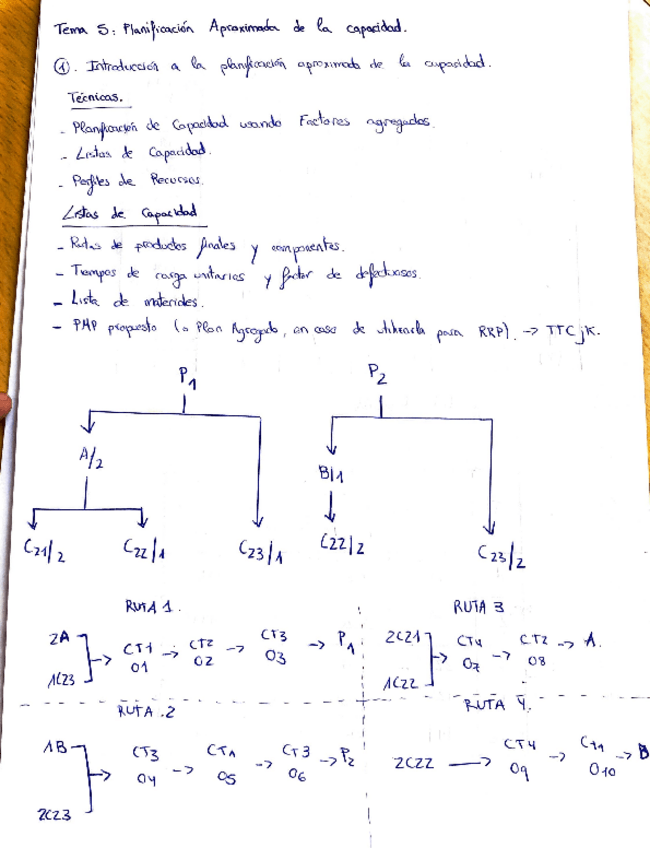 Tema 5: Planificación Aproximada de la capacidad.
①. Introducción a la planificación aproximada de la capacidad.
Técnicas.
- Planificación de Capacidad usando Factores agregados.
- Listas de Capacidad.
- Perfiles de Recursos.
Listas de Capacidad
- Rutas de productos finales y componentes.
- Tiempos de carga unitarios y factor de defectuosos.
- Lista de materiales.
- PMP propuesto (o Plan Agregado, en caso de utilizarla para RRP). -> TTCjk.
P1 P2
A/2 B/1
C21/2 C22/1 C23/1 C22/2 C23/2
RUTA 1.
2A
1C23
CT1 -> CT2 -> CT3 -> P1
O1 O2 O3
RUTA 3
2C21
1C22
CT4 -> CT2 -> A.
O7 O8
RUTA .2
1B
2C23
CT3 -> CT1 -> CT3 -> P2
O4 O5 O6
RUTA 4.
2C22 -> CT4 -> CT1 -> B
O9 O10